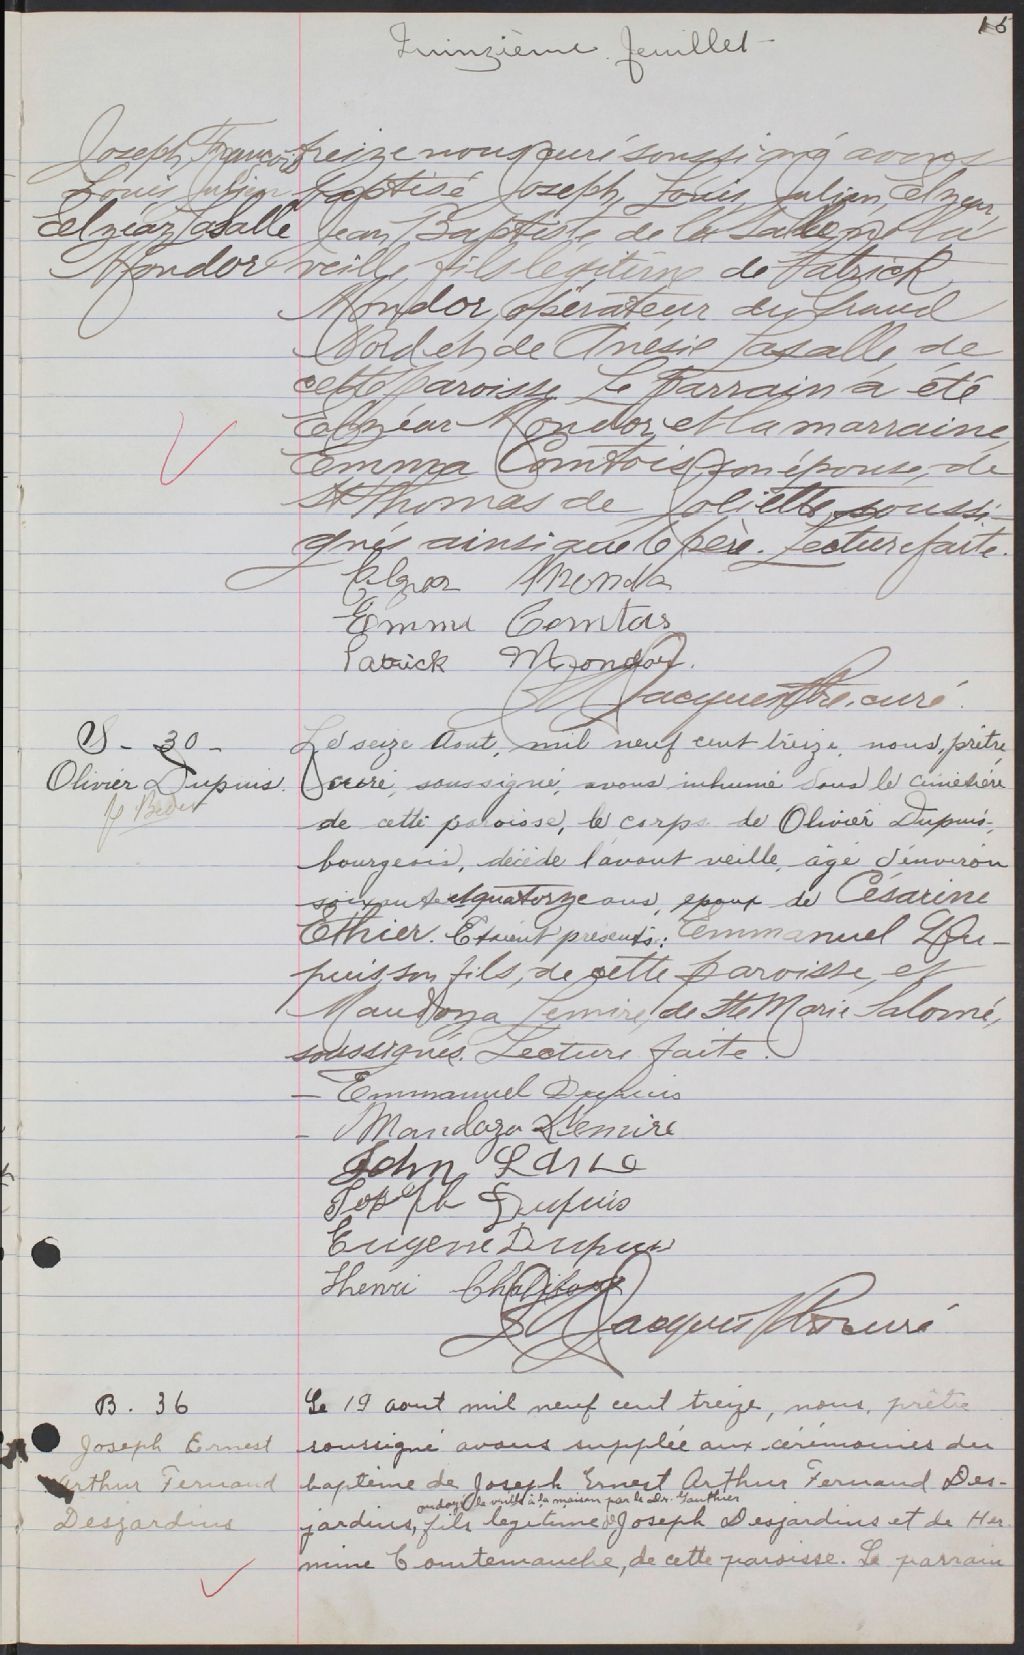 15
Quinzième feuillet
Joseph François
Louis Julien
Elzéar Lasalle
Mondor
treize nous curé soussigné avons
baptisé Joseph, Louis, Julien, Elzéar,
Jean Baptiste de la Salle, né la
veille, fils légitime de Patrick
Mondor, opérateur du Grand
Nord et de Anésie Lasalle, de
cette paroisse. Le Parrain a été
Elzéar Mondor et la marraine,
Emma Comtois, son épouse, de
St Thomas de Joliette, soussi-
gnés ainsi que le père. Lecture faite.
Elzear Monda
Emma Comtas
Patrick Mondor.
Jacques Ptre. curé.
S - 30 -
Olivier Dupuis.
Le seize Aout, mil neuf cent treize, nous, prêtre
curé, soussigné, avons inhumé dans le cimetière
de cette paroisse, le corps de Olivier Dupuis,
bourgeois, décédé l'avant veille, âgé d'environ
soixante et quatorze ans, epoux de Césarine
Ethier. Etaient présents: Emmanuel Du-
puis son fils, de cette paroisse, et
Mandoza Lemire, de Ste Marie Salomé,
soussignés. Lecture faite.
- Emmanuel Dupuis
- Mandoza Lemire
John
Joseph Dupuis
Eugene Dupuis
Henri
Jacques Ptre curé
B. 36
Joseph Ernest
Arthur Fernand
Desjardins
Le 19 aout mil neuf cent treize, nous, prêtre
soussigné avons supplée aux cérémonies du
baptême de Joseph Ernest Arthur Fernand Des-
ondoyé la veille à la maison par le Dr. Gauthier
jardins, fils legitime de Joseph Desjardins et de Her
mine Courtemanche, de cette paroisse. Le parrain